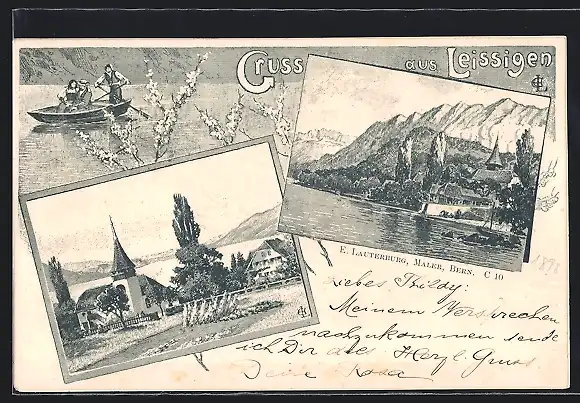 Gruss aus Leissigen
E. Lauterburg, Maler, Bern. C 10
Liebes Thildy:
Meinem Versprechen
nachzukommen sende
ich Dir als Herzl. Gruss
Deine Rosa